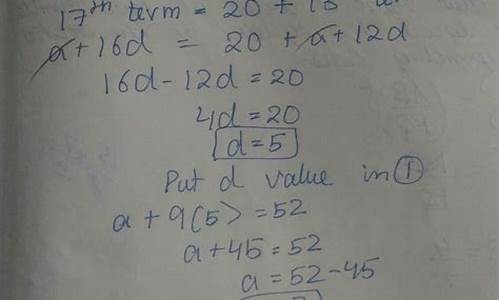 17th term = 20 + 13
a + 16d = 20 + a + 12d
16d - 12d = 20
4d = 20
d = 5
Put d value in ①
a + 9(5) = 52
a + 45 = 52
a = 52 - 45